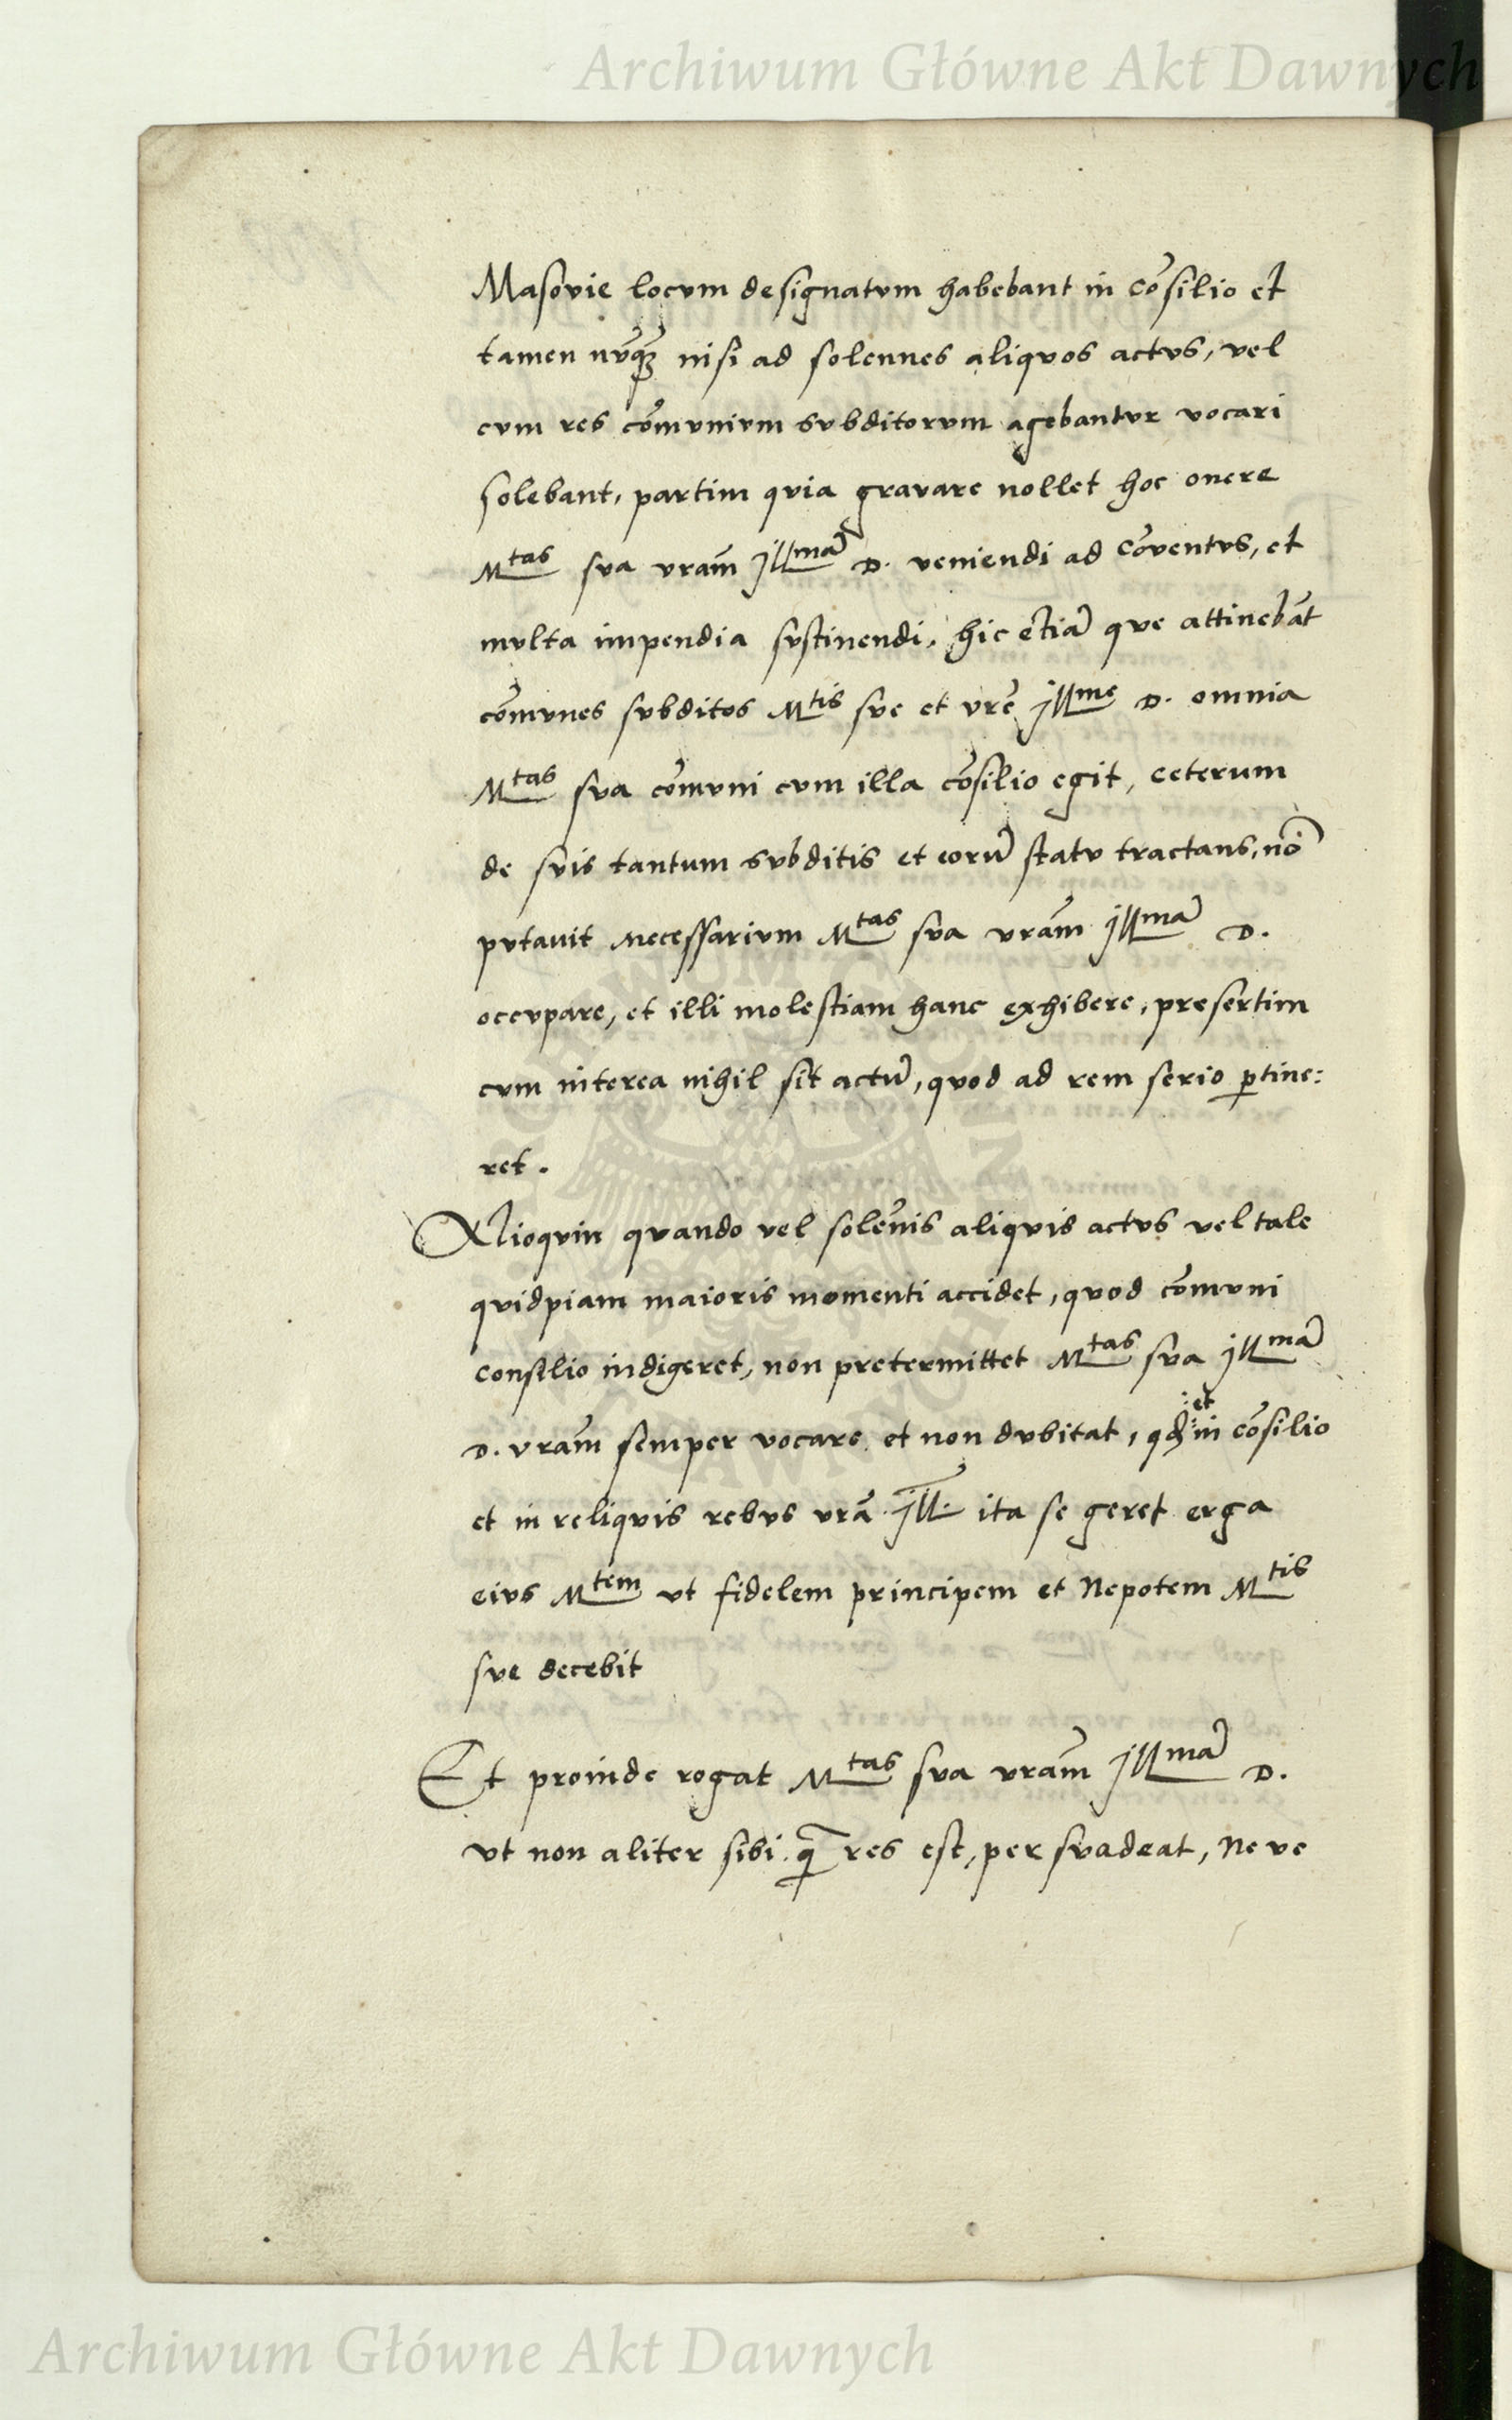 Archiwum Główne Akt Dawnych
Masovie locvm designatvm habebant in cõsilio et
tamen nv̄qꝫ nisi ad solennes aliqvos actvs, vel
cvm res cõmvnivm svbditorvm agebantvr vocari
solebant, partim qvia gravare nollet hoc onere
Mtas sva vram̃ Jllmã D. veniendi ad cõventvs, et
mvlta impendia svstinendi, hic etiã qve attinebãt
cõmvnes svbditos Mtis sve et vrẽ Jllme D. omnia
Mtas sva cõmvni cvm illa cõsilio egit, ceterum
de svis tantum svbditis et eorũ statv tractans, nõ
pvtauit necessarivm Mtas sva vram̃ Jllmã D.
occvpare, et illi molestiam hanc exhibere, presertim
cvm interea nihil sit actũ, qvod ad rem serio ꝑtine:
ret.
Alioqvin qvando vel solẽnis aliqvis actvs vel tale
qvidpiam maioris momenti accidet, qvod cõmvni
consilio indigeret, non pretermittet Mtas sva Jllmã
:et:
D. vram̃ semper vocare, et non dvbitat, qđ in cõsilio
et in reliqvis rebvs vrã Jll̃. ita se geret erga
eivs Mtem vt fidelem principem et Nepotem Mtis
sve decebit
Et proinde rogat Mtas sva vram̃ Jllmã D.
vt non aliter sibi q̃ res est, persvadeat, Neve
Archiwum Główne Akt Dawnych